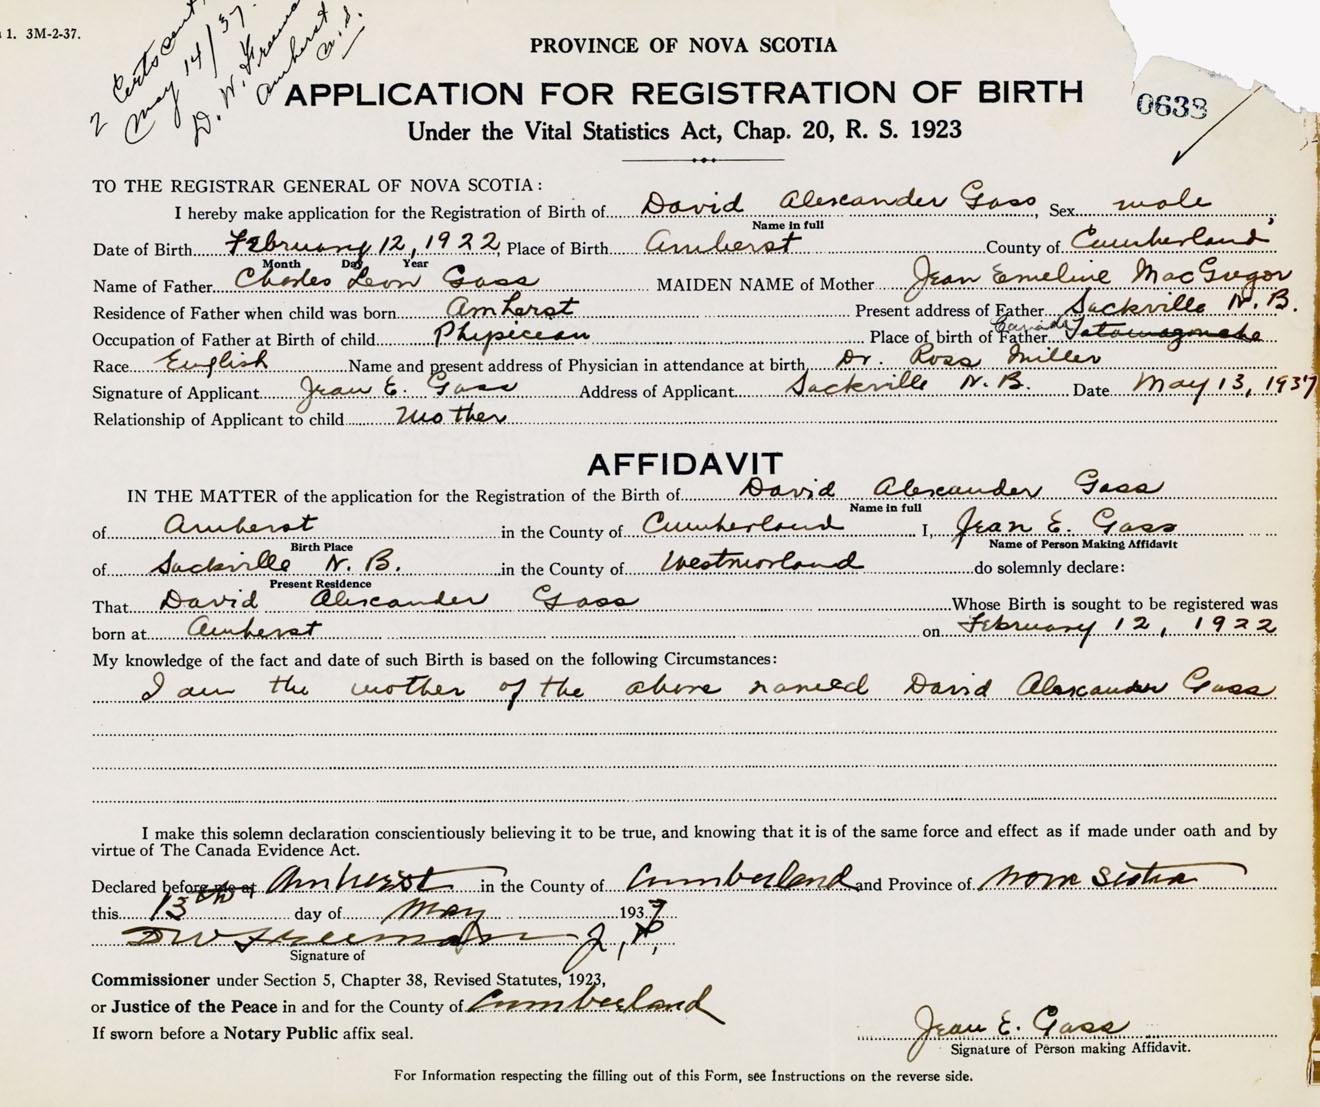 1. 3M-2-37.
2 Certs sent
May 14/37
D. W. Freeman
Amherst
N.S.
PROVINCE OF NOVA SCOTIA
APPLICATION FOR REGISTRATION OF BIRTH
0638
Under the Vital Statistics Act, Chap. 20, R. S. 1923
TO THE REGISTRAR GENERAL OF NOVA SCOTIA:
I hereby make application for the Registration of Birth of David Alexander Gass, Sex male
Name in full
Date of Birth February 12, 1922, Place of Birth Amherst County of Cumberland
Month Day Year
Name of Father Charles Leon Gass MAIDEN NAME of Mother Jean Emeline MacGregor
Residence of Father when child was born Amherst Present address of Father Sackville N.B.
Occupation of Father at Birth of child Physician Place of birth of Father Canada Tatamagouche
Race English Name and present address of Physician in attendance at birth Dr. Ross Miller
Signature of Applicant Jean E. Gass Address of Applicant Sackville N.B. Date May 13, 1937
Relationship of Applicant to child Mother
AFFIDAVIT
IN THE MATTER of the application for the Registration of the Birth of David Alexander Gass
Name in full
of Amherst in the County of Cumberland I, Jean E. Gass
Birth Place Name of Person Making Affidavit
of Sackville N.B. in the County of Westmorland do solemnly declare:
Present Residence
That David Alexander Gass Whose Birth is sought to be registered was
born at Amherst on February 12, 1922
My knowledge of the fact and date of such Birth is based on the following Circumstances:
I am the mother of the above named David Alexander Gass
I make this solemn declaration conscientiously believing it to be true, and knowing that it is of the same force and effect as if made under oath and by
virtue of The Canada Evidence Act.
Declared before me at Amherst in the County of Cumberland and Province of Nova Scotia
this 13th day of May 1937
D W Freeman J.P.
Signature of
Commissioner under Section 5, Chapter 38, Revised Statutes, 1923,
or Justice of the Peace in and for the County of Cumberland
If sworn before a Notary Public affix seal.
Jean E. Gass
Signature of Person making Affidavit.
For Information respecting the filling out of this Form, see Instructions on the reverse side.